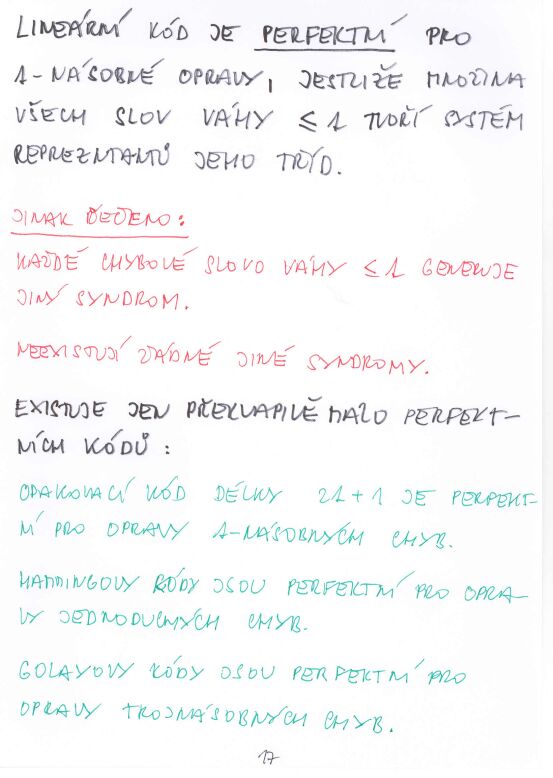 LINEÁRNÍ KÓD JE PERFEKTNÍ PRO
1-NÁSOBNÉ OPRAVY, JESTLIŽE MNOŽINA
VŠECH SLOV VÁHY ≤ 1 TVOŘÍ SYSTÉM
REPREZNTANTŮ JEHO TŘÍD.
JINAK ŘEČENO:
KAŽDÉ CHYBOVÉ SLOVO VÁHY ≤ 1 GENERUJE
JINÝ SYNDROM.
NEEXISTUJÍ ŽÁDNÉ JINÉ SYNDROMY.
EXISTUJE JEN PŘEKVAPIVĚ MÁLO PERFEKT-
NÍCH KÓDŮ:
OPAKOVACÍ KÓD DÉLKY 21+1 JE PERFEKT-
NÍ PRO OPRAVY 1-NÁSOBNÝCH CHYB.
HAMMINGOVY KÓDY JSOU PERFEKTNÍ PRO OPRA-
VY JEDNODUCHÝCH CHYB.
GOLAYOVY KÓDY JSOU PERFEKTNÍ PRO
OPRAVY TROJNÁSOBNÝCH CHYB.
17